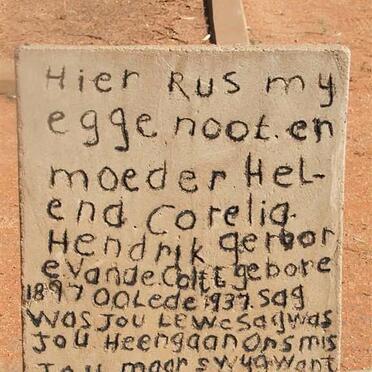 Hier RUS my
egge noot. en
moeder Hel-
end. Corelia.
Hendrik gerbor
evande.Coltt gebore
1897 OOLede.1937. sag
was Jou Lewe sag was
Jou Heengaan ons mis
Jou maar swyg want